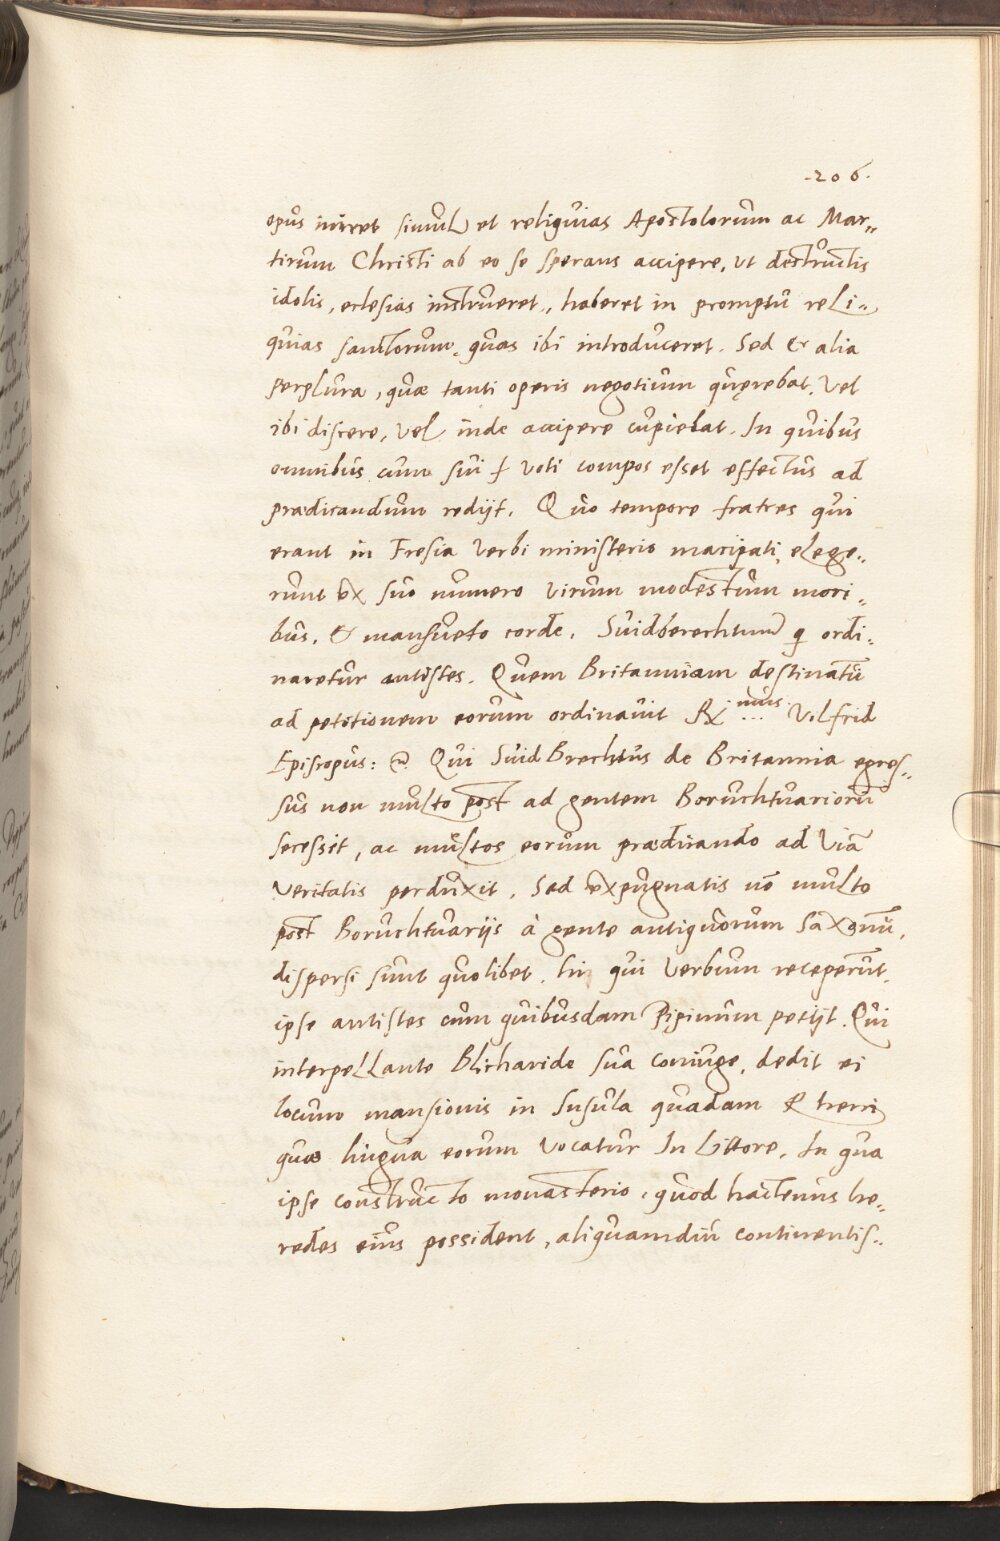 .206.
opus iniret simul et reliquias Apostolorum ac Mar„
tirum Christi ab eo se sperans accipere, ut destructis
idolis, eclesias instrueret, haberet in promptu reli„
quias sanctorum, quas ibi introduceret. Sed & alia
perplura, quæ tanti operis negotium quęrebat, vel
ibi discere, vel inde accipere cupiebat. In quibus
omnibus cum sui voti compos esset effectus ad
prædicandum redijt. Quo tempore fratres qui
erant in Fresia Verbi ministerio macipati, elege„
runt ex suo numero virum modestum mori„
bus, & mansueto corde, Suidberechtum q ordi„
naretur antistes. Quem Britanniam destinatū
ad petitionem eorum ordinavit Rx mus ... Vilfrid
Episcopus: Qui SuidBrechtus de Britannia egres„
sus non multo post ad gentem Boruchtuariorū
secessit, ac multos eorum prædicando ad viā
veritatis perduxit. Sed expugnatis nō multo
post Boruchtuarijs à gente antiquorum Saxonū,
dispersi sunt quolibet. hi qui verbum receperunt,
ipse antistes cum quibusdam Pipinum petijt. Qui
interpellante Blithande sua coniuge, dedit ei
locum mansionis in Insula quadam Rheni
quæ lingua eorum vocatur In Littore, In qua
ipse constructo monasterio, quod hactenus he„
redes eius possident, aliquamdiu continentis„